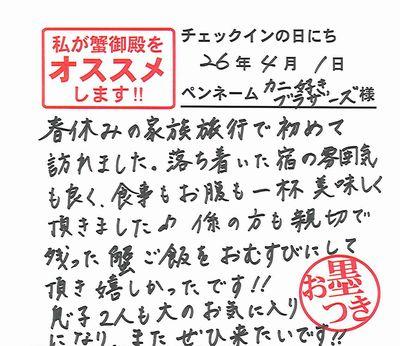 私が蟹御殿を
オススメ
します!!
チェックインの日にち
26年4月1日
ペンネーム カニ好きブラザーズ様
春休みの家族旅行で初めて
訪れました。落ち着いた宿の雰囲気
も良く、食事もお腹も一杯美味しく
頂きました♪ 係の方も親切で
残った蟹ご飯をおむすびにして
頂き嬉しかったです!!
息子2人も大のお気に入り
になり、またぜひ来たいです!!
お墨つき